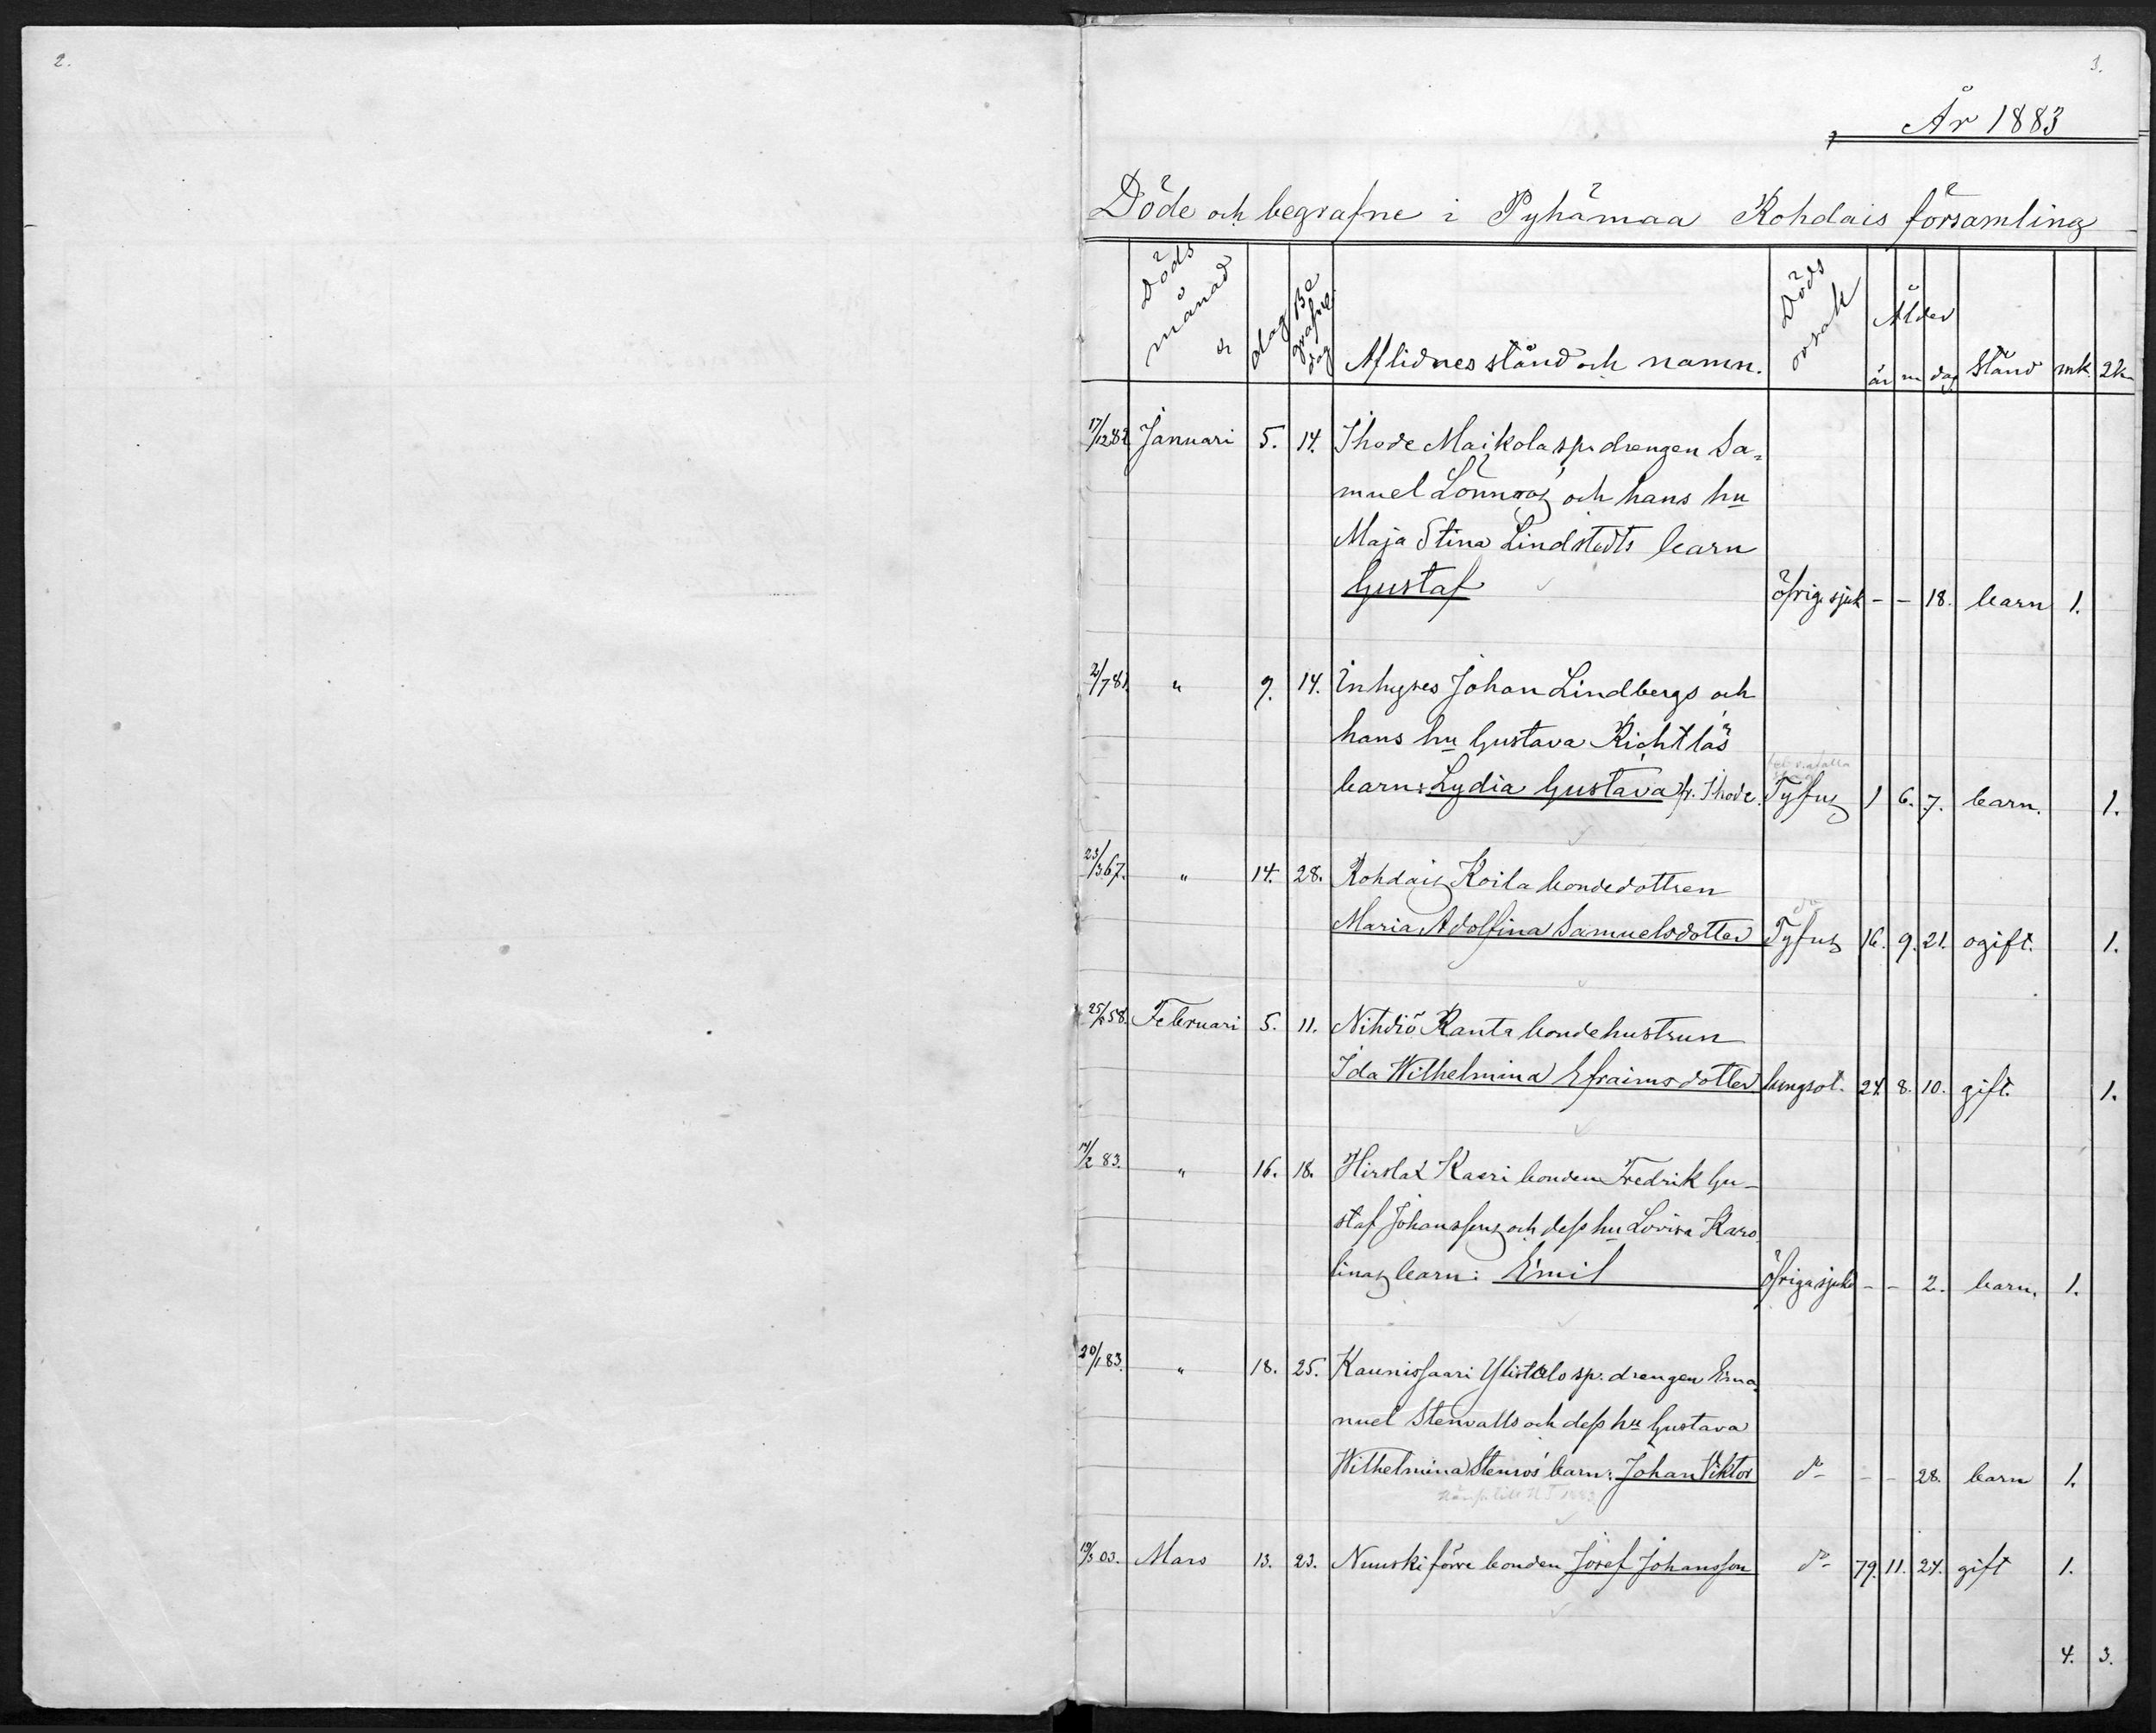 2.
3.
År 1883
Döde och begrafne i Pyhämaa Rohdais församling
Döds månad & dag Be grafne dag Aflidnes stånd och namn. Döds orsak Ålder år m dag Stånd mk. 2k
17/12 82 Januari 5. 14. Ihode Maikola sp. drengen Sa=
muel Lönnros och hans hu
Maja Stina Lindstedts barn
Gustaf öfrig. sjuk - - 18. barn 1.
2/7 81. " 9. 14. Inhyses Johan Lindbergs och
hans hu Gustava Richtlås
barn: Lydia Gustava fr. Ihode. Tyfus 1 6. 7. barn. 1.
23/3 67. " 14. 28. Rohdais Koila bondedottren
Maria Adolfina Samuelsdotter Tyfus 16. 9. 21. ogift. 1.
25/5 58. Februari 5. 11. Nihdiö Ranta bondehustrun
Ida Wilhelmina Efraimsdotter lungsot. 24. 8. 10. gift. 1.
14/2 83. " 16. 18. Hirslax Kaeri bonden Fredrik Gu-
staf Johanssons och dess hu Lovisa Karo
linas barn: Emil öfriga sjukd - - 2. barn. 1.
20/1 83. " 18. 25. Kaunissaari Ylistalo sp. drengen Ema=
nuel Stenvalls och dess hu Gustava
Wilhelmina Stenros' barn: Johan Viktor do - - 28. barn 1.
19/3 03. Mars 13. 23. Nuuski förre bonden Josef Johansson do 79. 11. 24. gift 1.
4. 3.